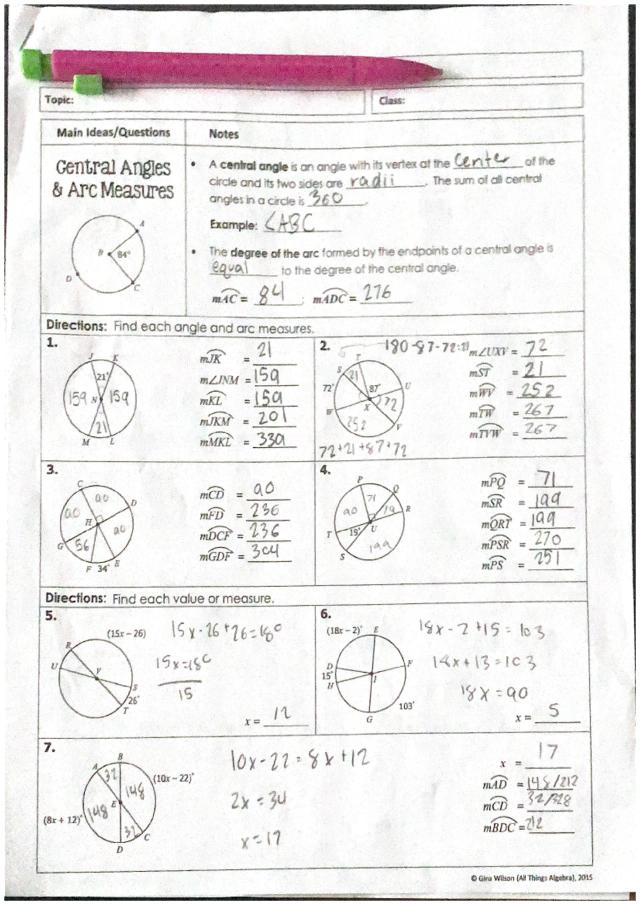 Topic:
Class:
Main Ideas/Questions
Notes
Central Angles
& Arc Measures
A
B
84°
C
D
• A central angle is an angle with its vertex at the center of the
circle and its two sides are radii. The sum of all central
angles in a circle is 360.
Example: <ABC
• The degree of the arc formed by the endpoints of a central angle is
equal to the degree of the central angle.
mAC = 84; mADC = 276
Directions: Find each angle and arc measures.
1.
J K
21°
159 N 159
21
M L
mJK = 21
m∠JNM = 159
mKL = 159
mJKM = 201
mMKL = 339
2.
180-87-72=21
T
S 21
72° 87° U
X 72
W 252 V
72+21+87+72
m∠UXV = 72
mST = 21
mWV = 252
mTW = 267
mTVW = 267
3.
C
90 D
90
H 90
G 56
F 34° E
mCD = 90
mFD = 236
mDCF = 236
mGDF = 304
4.
P
71 Q
90 19 R
T 19° U
199
S
mPQ = 71
mSR = 199
mQRT = 199
mPSR = 270
mPS = 251
Directions: Find each value or measure.
5.
(15x – 26)
R
U V
S
26°
T
15x-26+26=180
15x=180
15
x = 12
6.
(18x – 2)° E
D F
15° I
H
103°
G
18x-2+15=103
18x+13=103
18x=90
x = 5
7.
B
A 32 (10x – 22)°
148
148 E
(8x + 12)°
32 C
D
10x-22=8x+12
2x=34
x=17
x = 17
mAD = 148/212
mCD = 32/328
mBDC = 212
© Gina Wilson (All Things Algebra), 2015